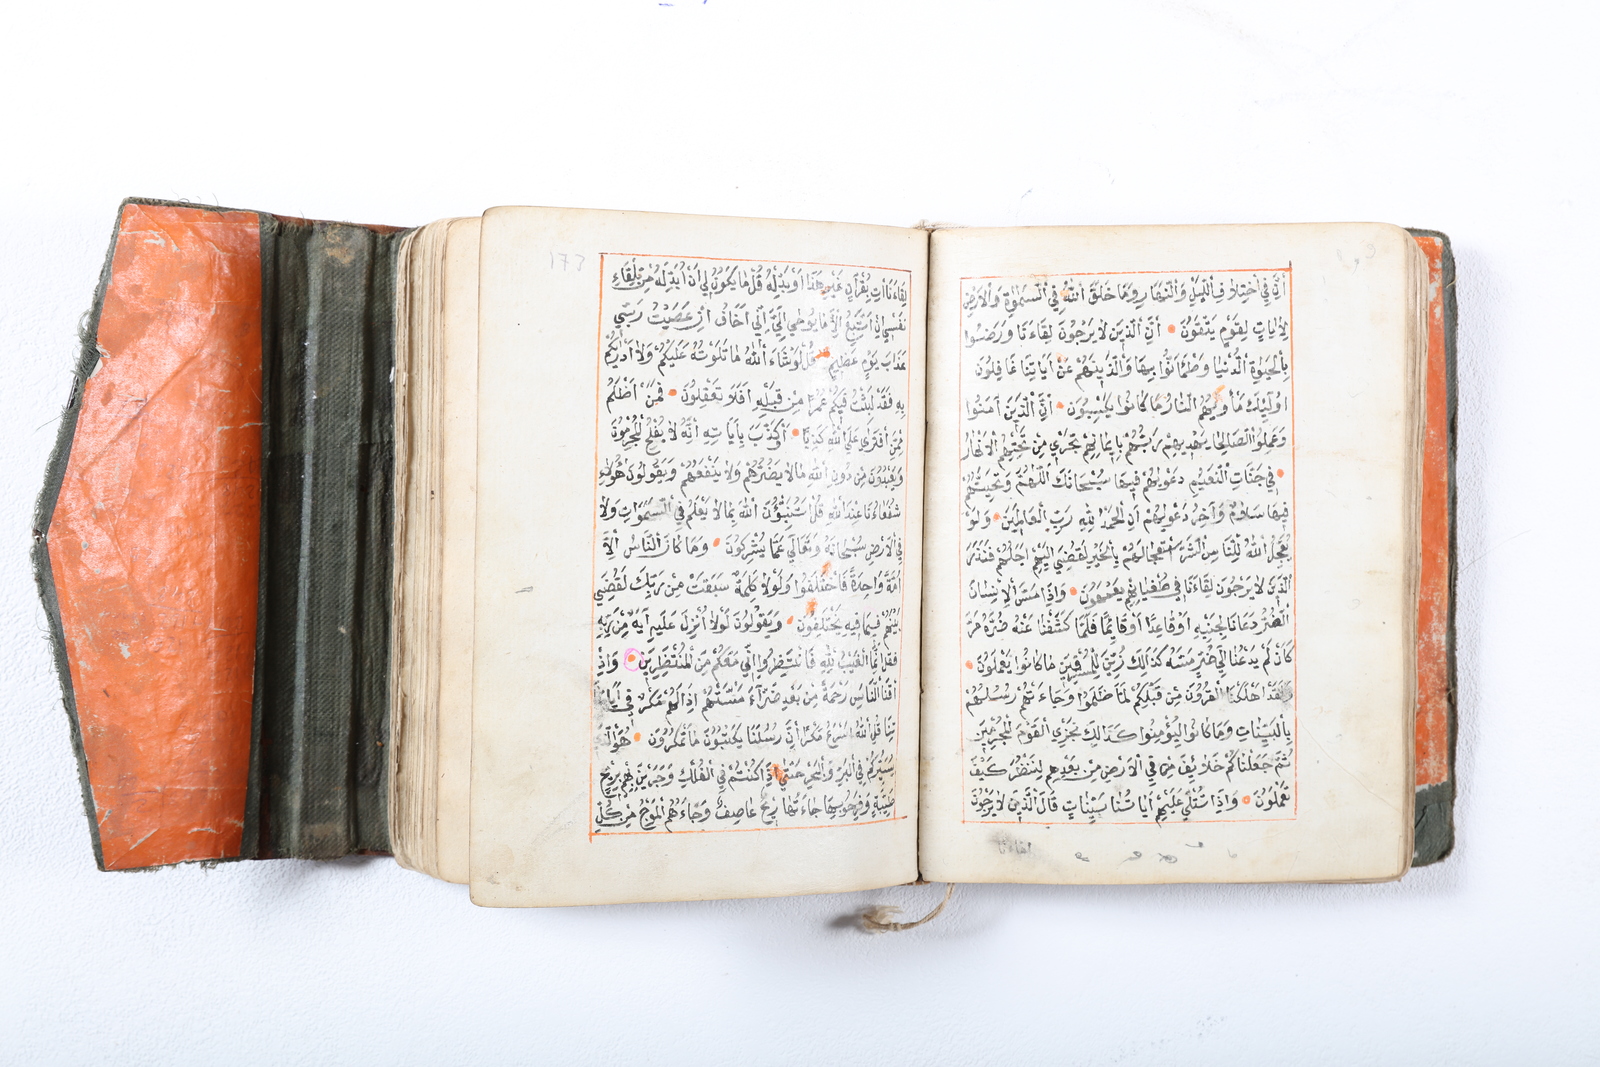 أنّ في اختلاف الليل والنّهار وما خلق الله في السّمٰوٰة والارض
لأيات لقوم يتّقون • انّ الّذين لا يرجون لقاءنا ورضوا
بالحيوة الدّنيا وطمأنّوا بها والّذينهم عن اياتنا غافلون
اولٰئك مأويهم النّار بما كانوا يكسبون • انّ الّذين آمنوا
وعملوا الصّالحا يهديهم ربّهم بايمانهم تجري من تحتهم الانهار
• في جنّات النّعيم دعويهم فيها سبحانك اللّهمّ وتحيّتهم
فيها سلام وآخر دعويهم ان الحمد لله ربّ العالمين • ولو
يعجّل الله للنّاس الشّرّ استعجالهم بالخير لقضي اليهم اجلهم فنذر
الّذين لا يرجون لقاءنا في طغيانهم يعمهون • واذا مسّ الانسان
الضّرّ دعانا لجنبه او قاعدا او قايما فلمّا كشفنا عنه ضرّه مرّ
كان لم يدعنا الي ضرّ مسّه كذالك زيّن للمسرفين ما كانوا يعملون •
ولقد اهلكنا القرون من قبلكم لمّا ظلموا وجاءتهم رسلهم
بالبيّنات وما كانوا ليؤمنوا كذالك نجزي القوم المجرمين
ثمّ جعلناكم خلايف في الارض من بعدهم لننظر كيف
تعملون • واذا تتلي عليهم اياتنا بيّنات قال الّذين لا يرجون
لقاءنا
173
لقاءنا أت بقرآن غير هذا او بدّله قل ما يكون لي ان ابدّله من تلقاء
نفسي ان اتّبع الّا ما يوحي اليّ انّي اخاف ان عصيت ربّي
عذاب يوم عظيم • قل لو شاء الله ما تلوته عليكم ولا ادريكم
به فقد لبثت فيكم عمرا من قبله افلا تعقلون • فمن اظلم
ممّن افتري علي الله كذبا • او كذّب باياته انّه لا يفلح المجرمون
ويعبدون من دون الله ما لا يضرّهم ولا ينفعهم ويقولون هٰؤلاء
شفعاءنا عند الله قل اتنبّؤن الله بما لا يعلم في السّمٰوات ولا
في الارض سبحانه وتعالي عمّا يشركون • وما كان النّاس الّا
امّة واحدة فاختلفوا ولولا كلمة سبقت من ربّك لقضي
بينهم فيما فيه يختلفون • ويقولون لولا انزل عليه آية من ربّه
فقل انّما الغيب لله فانتظروا انّي معكم من المنتظرين • واذا
اذقنا النّاس رحمة من بعد ضرّآء مسّتهم اذا لهم مكر في ايا
تنا قل الله اسرع مكرا انّ رسلنا يكتبون ما تمكرون • هو الّذي
يسيّركم في البرّ والبحر حتّي اذا كنتم في الفلك وجرين بهم بريح
طيّبة وفرحوا بها جاءتها ريح عاصف وجاءهم الموج من كلّ